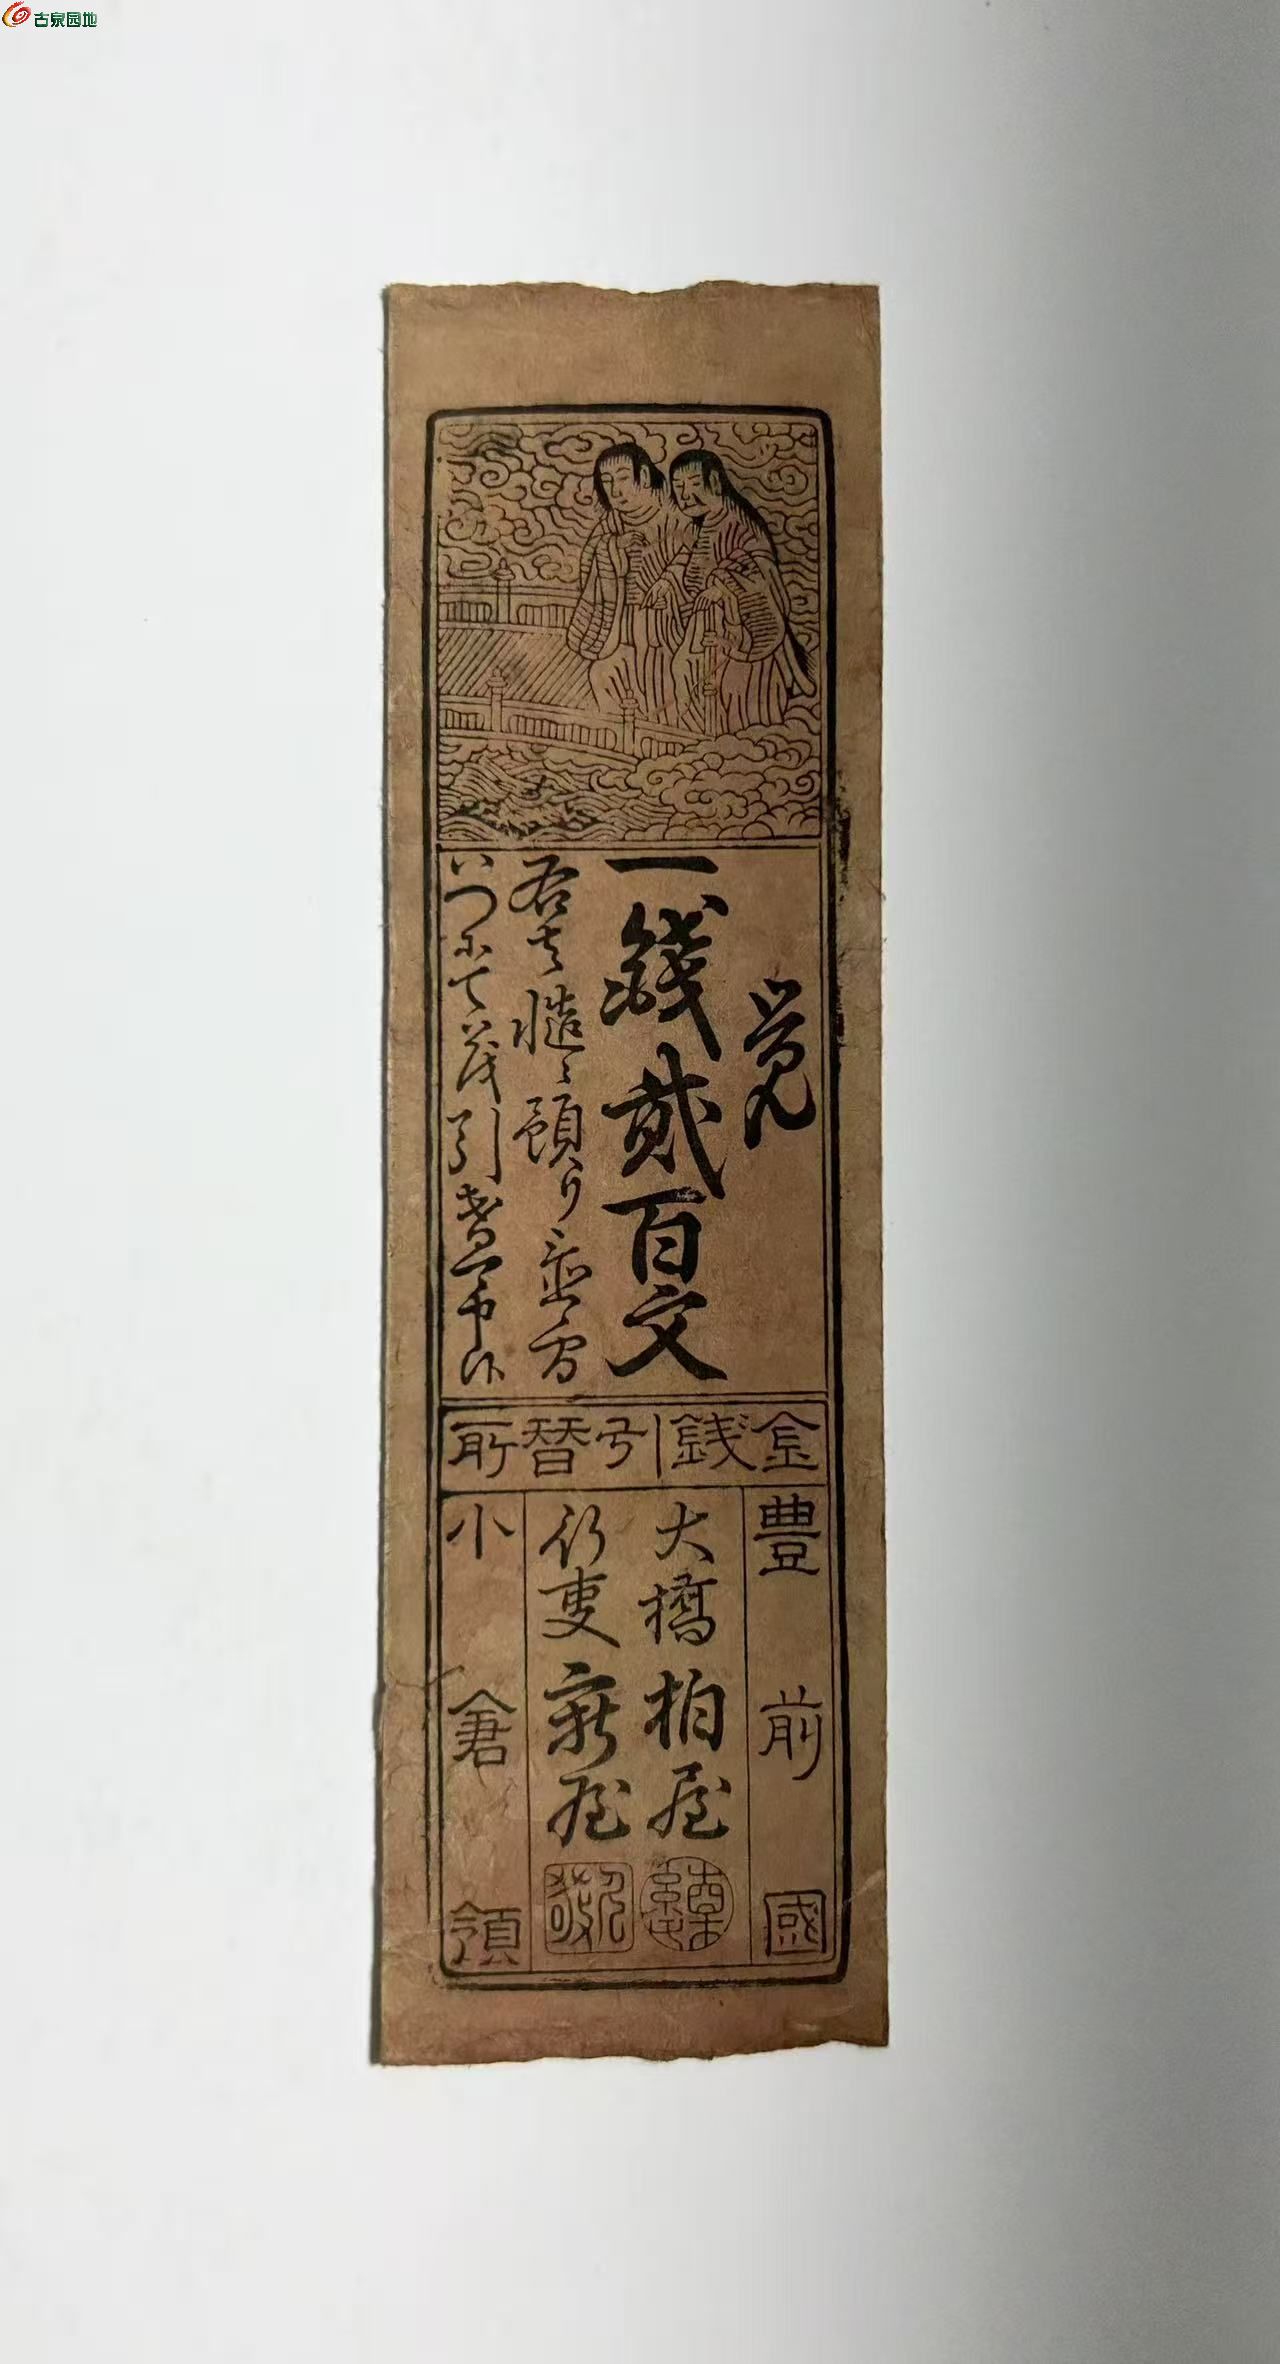 古泉园地
覚
一錢貳百文
右者慥ニ預り
いつにても引替可申候
金銭引替所
豊前國
大橋柏屋
行事新屋
小倉領